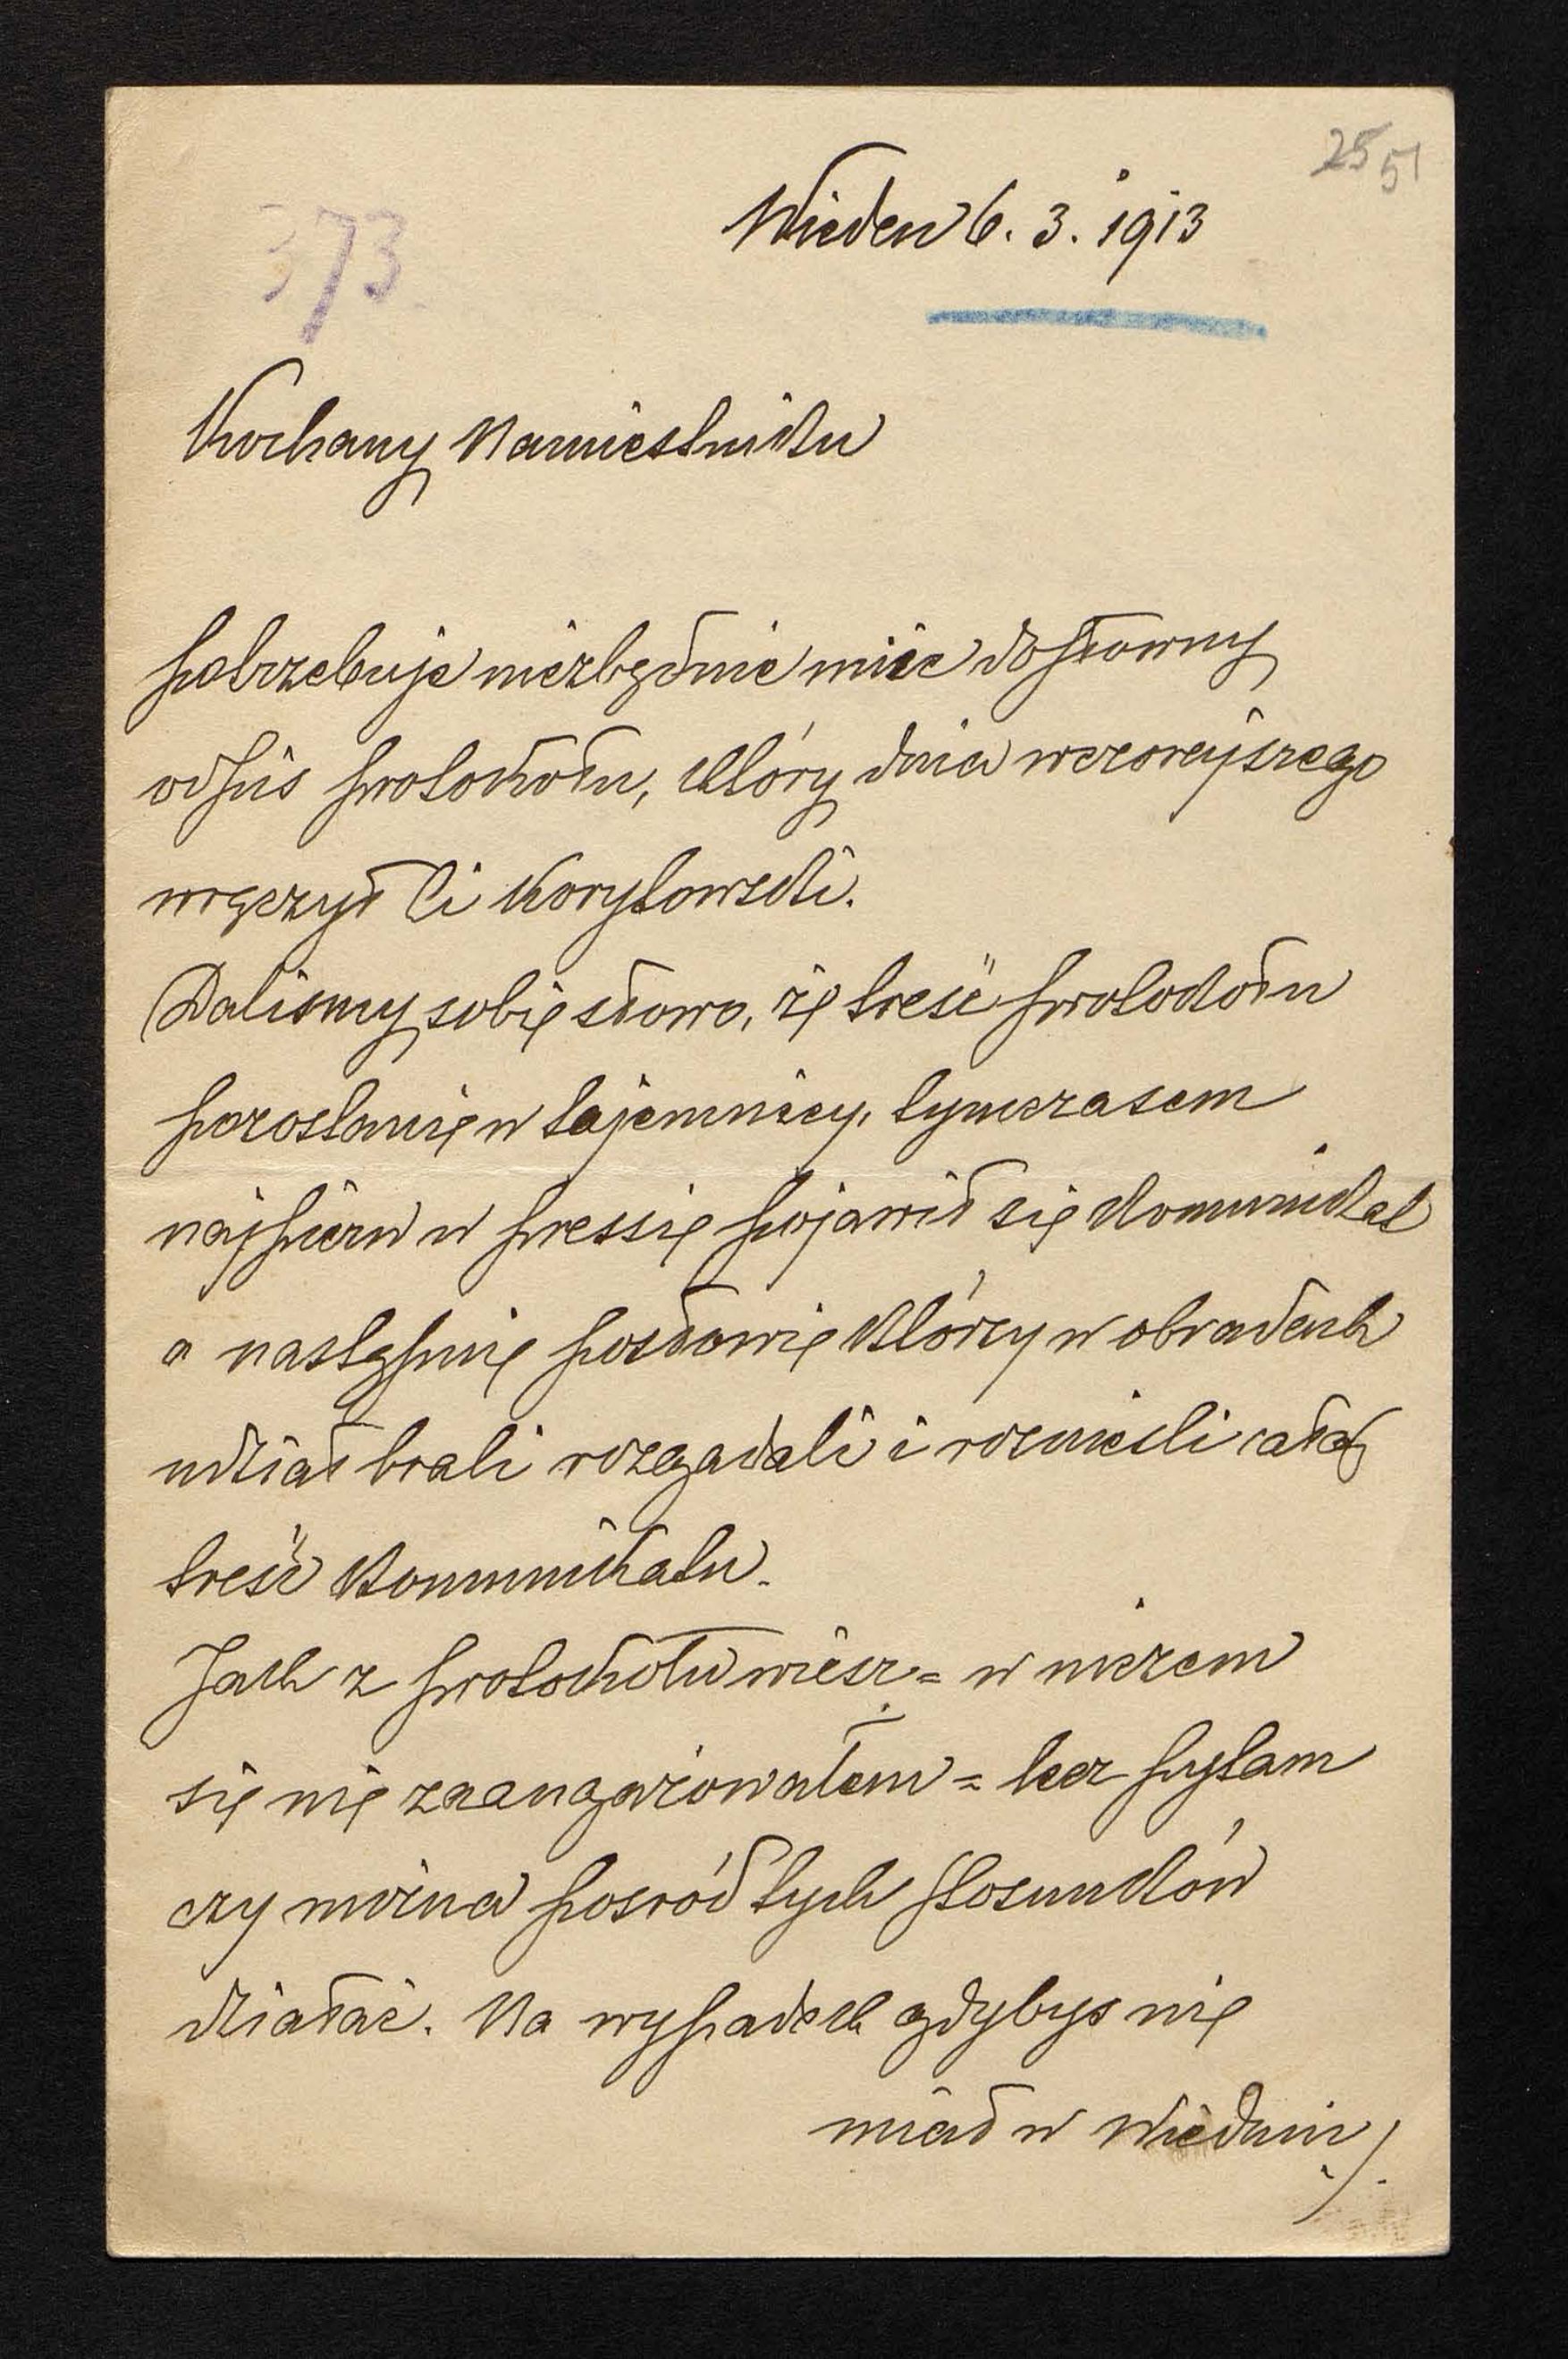 25 51
373
Wiedeń 6. 3. 1913
Kochany Namiestniku
potrzebuje niezbędnie mieć dosłowny
odpis protokołu, który dnia wczorajszego
wręczył Ci Korytowski.
Daliśmy sobie słowo, że treść protokołu
pozostanie w tajemnicy, tymczasem
najpierw w pressie pojawił się komunikat
a następnie posłowie którzy w obradach
udział brali rozgadali i roznieśli całą
treść komunikatu.
Jak z protokołu wiesz = w niczem
się nie zaangażowałem = lecz pytam
czy można pośród tych stosunków
działać. Na wypadek gdybyś nie
miał w Wiedniu ./.